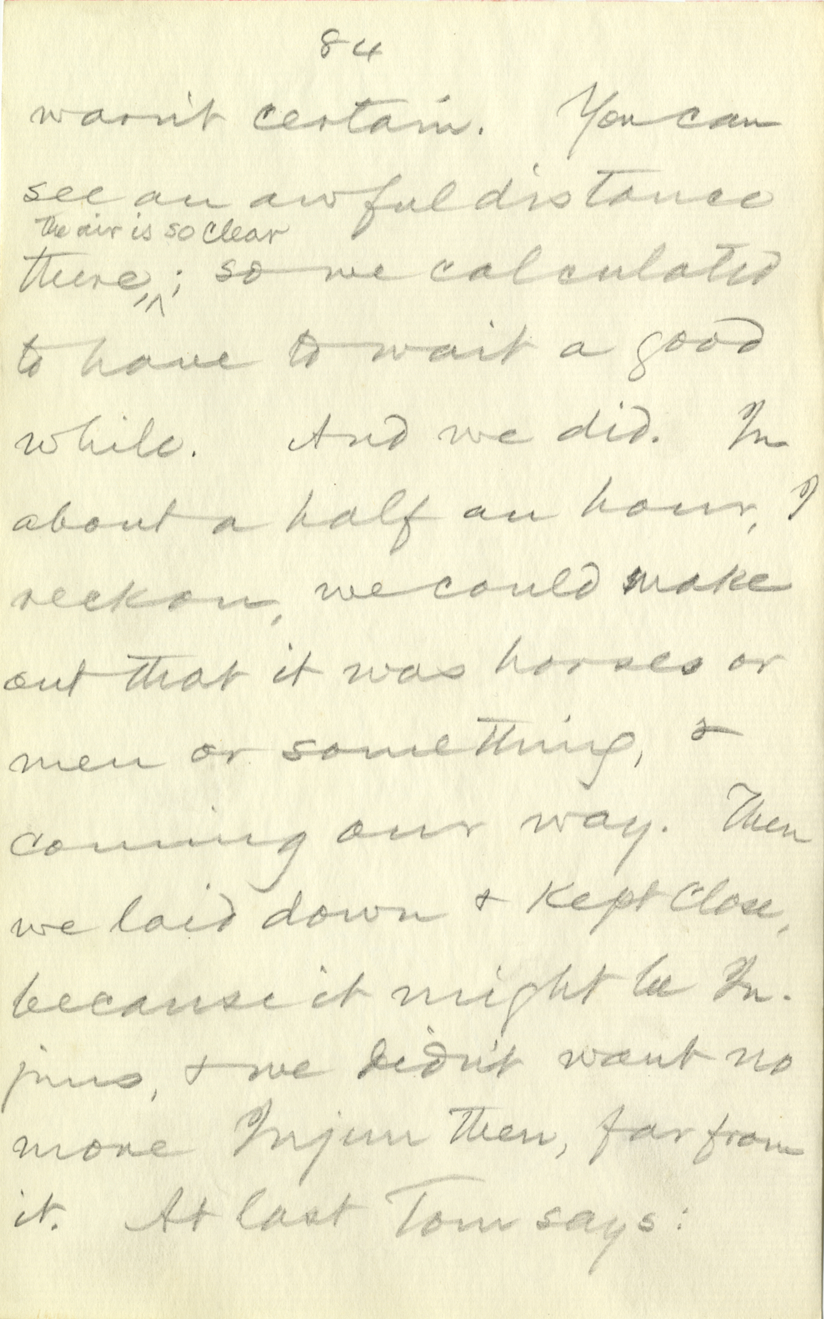 84
warn't certain. You can
see an awful distance
the air is so clear
there,; so we calculated
to have to wait a good
while. And we did. In
about a half an hour, I
reckon, we could make
out that it was horses or
men or something, &
coming our way. Then
we laid down & kept close,
because it might be In-
juns, & we didn't want no
more Injun then, far from
it. At last Tom says: